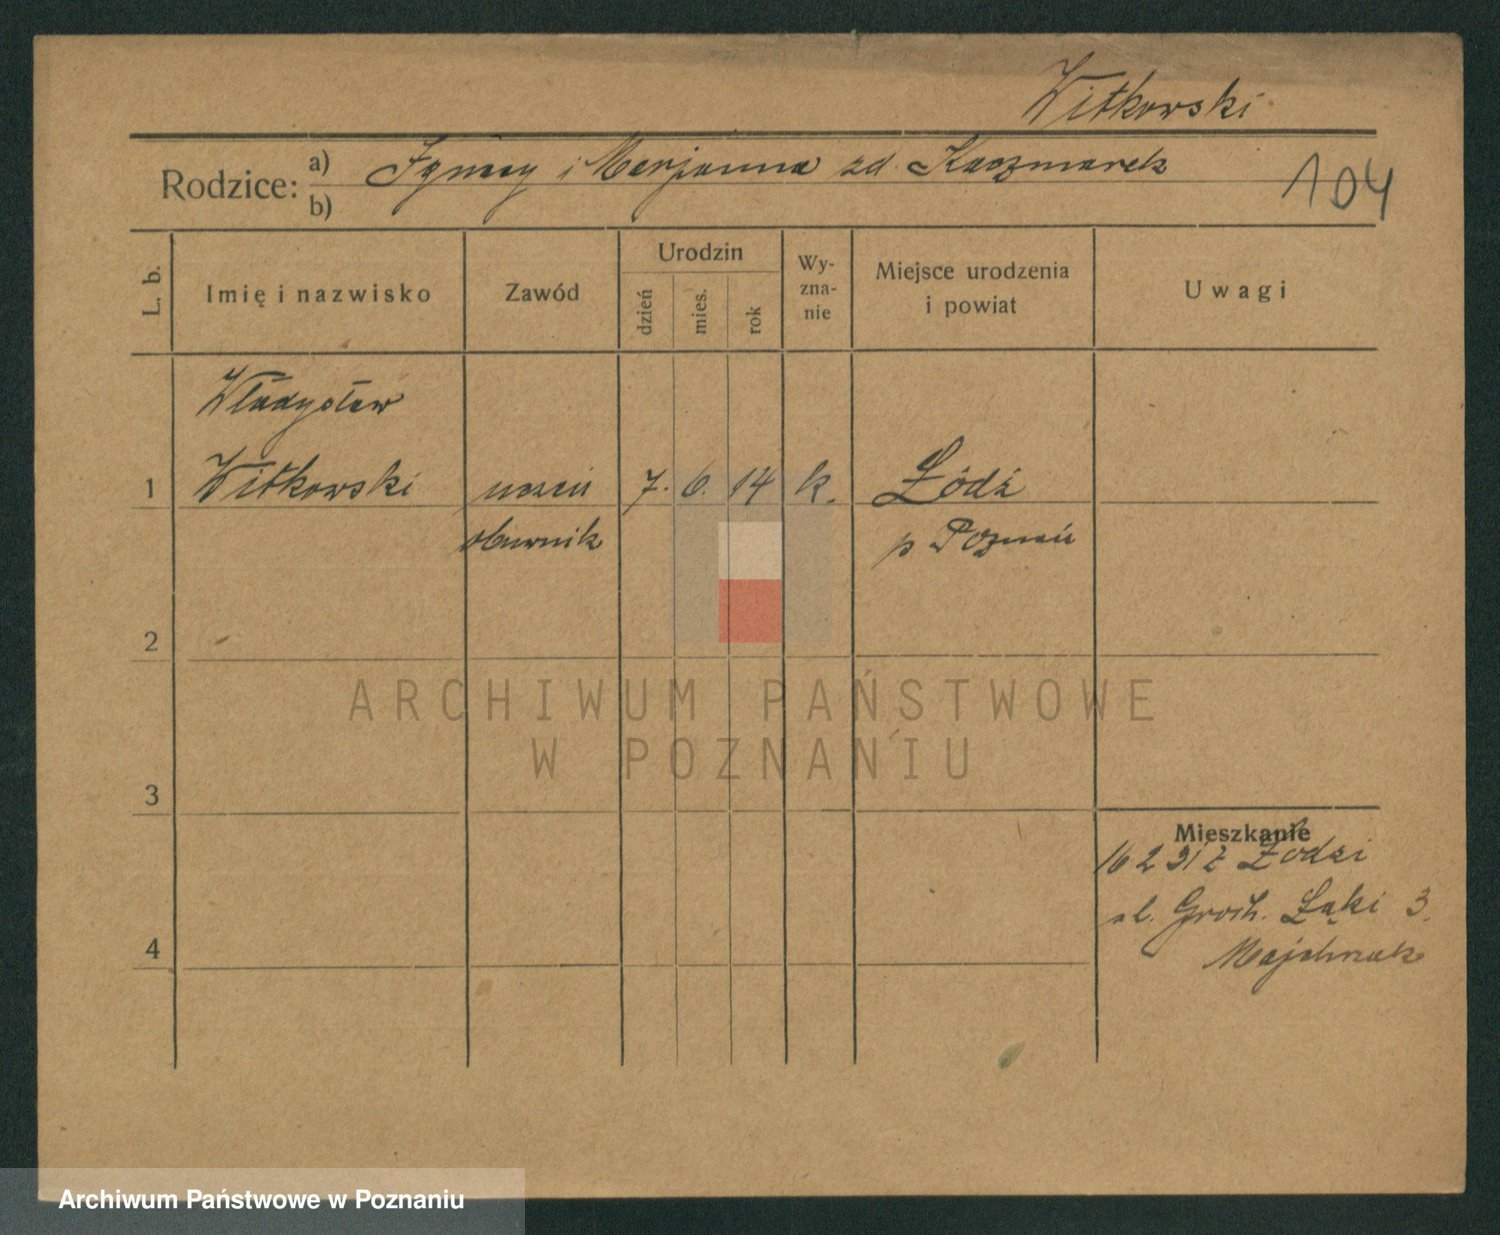 Witkowski
Rodzice: a) Ignacy i Marjanna zd. Kaczmarek
b)
104
L. b.
Imię i nazwisko
Zawód
Urodzin
dzień
mies.
rok
Wy-
zna-
nie
Miejsce urodzenia
i powiat
Uwagi
Władysław
1 Witkowski uczeń 7. 6. 14 k. Łódź
obuwnik p Poznań
2
ARCHIWUM PAŃSTWOWE
W POZNANIU
3
Mieszkanie
16 2 31 z Łodzi
ul. Groch. Łąki 3.
Majchrzak
4
Archiwum Państwowe w Poznaniu